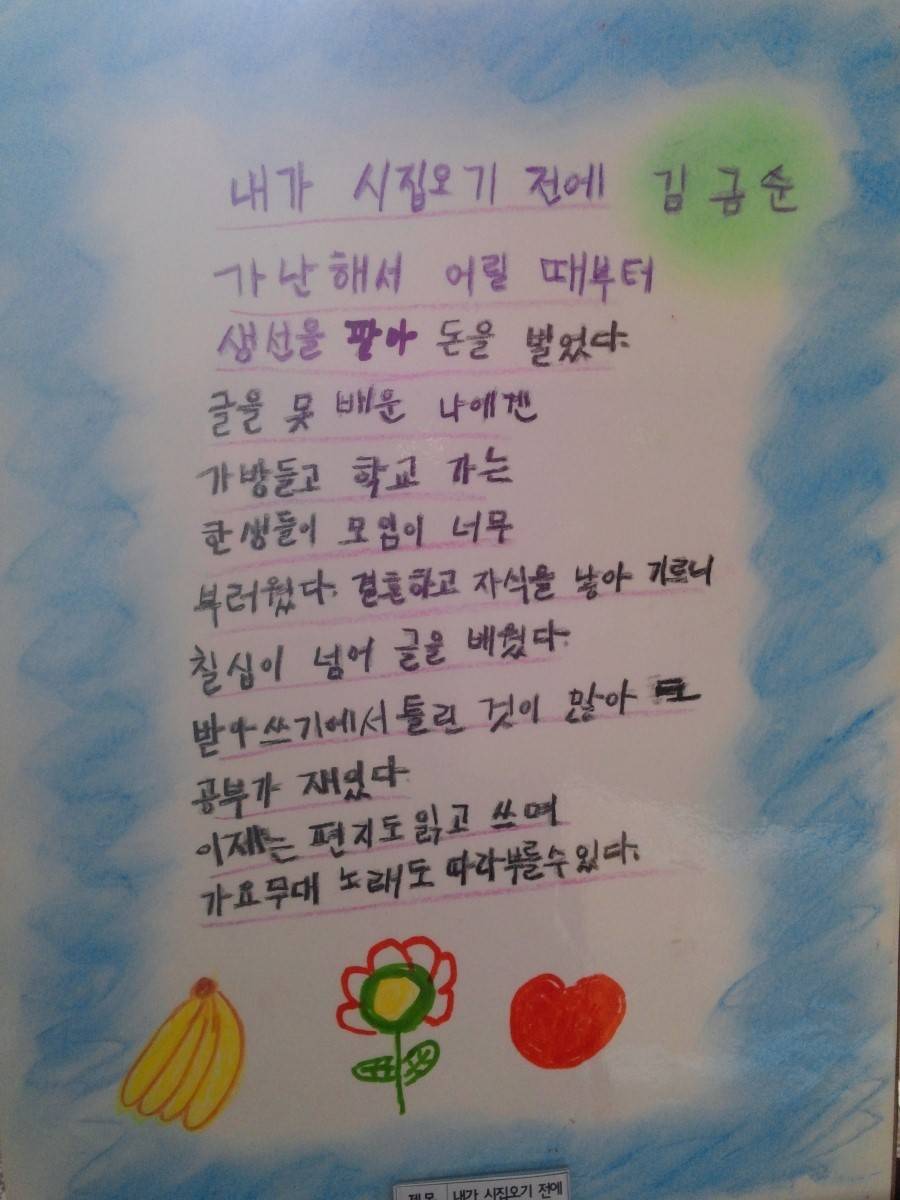 내가 시집오기 전에 김금순
가난해서 어릴 때부터
생선을 팔아 돈을 벌었다.
글을 못 배운 나에겐
가방들고 학교 가는
한생들이 모임이 너무
부러웠다. 결혼하고 자식을 낳아 기르니
칠십이 넘어 글을 배웠다.
받아쓰기에서 틀린 것이 많아도
공부가 재밌다
이제는 편지도 읽고 쓰며
가요무대 노래도 따라부를수있다.
제목 내가 시집오기 전에